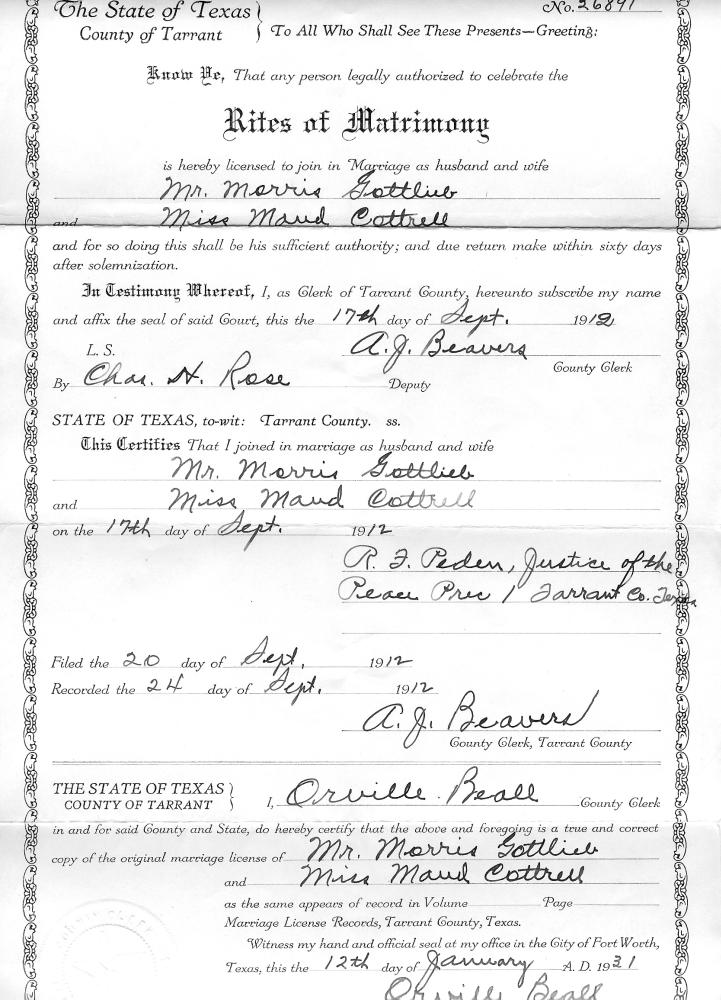 The State of Texas } No. 26891
County of Tarrant } To All Who Shall See These Presents—Greeting:
Know Ye, That any person legally authorized to celebrate the
Rites of Matrimony
is hereby licensed to join in Marriage as husband and wife
Mr. Morris Gottlieb
and Miss Maud Cottrell
and for so doing this shall be his sufficient authority; and due return make within sixty days
after solemnization.
In Testimony Whereof, I, as Clerk of Tarrant County, hereunto subscribe my name
and affix the seal of said Court, this the 17th day of Sept. 1912
L. S. A. J. Beavers
County Clerk
By Chas. H. Rose Deputy
STATE OF TEXAS, to-wit: Tarrant County. ss.
This Certifies That I joined in marriage as husband and wife
Mr. Morris Gottlieb
and Miss Maud Cottrell
on the 17th day of Sept. 1912
R. F. Peden, Justice of the
Peace Prec 1 Tarrant Co. Texas
Filed the 20 day of Sept. 1912
Recorded the 24 day of Sept. 1912
A. J. Beavers
County Clerk, Tarrant County
THE STATE OF TEXAS }
COUNTY OF TARRANT } I, Orville Beall County Clerk
in and for said County and State, do hereby certify that the above and foregoing is a true and correct
copy of the original marriage license of Mr. Morris Gottlieb
and Miss Maud Cottrell
as the same appears of record in Volume Page
Marriage License Records, Tarrant County, Texas.
Witness my hand and official seal at my office in the City of Fort Worth,
Texas, this the 12th day of January A. D. 1931
Orville Beall